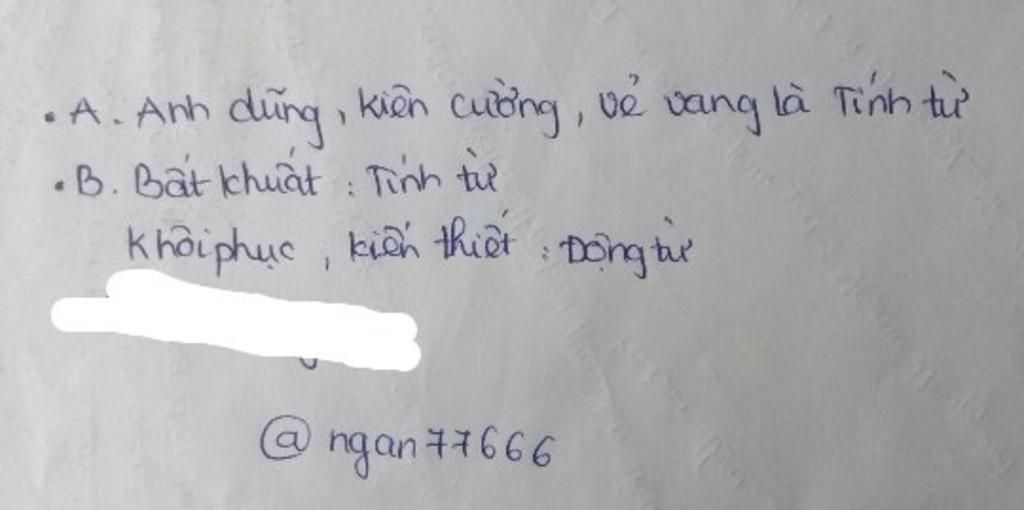 • A. Anh dũng, kiên cường, vẻ vang là Tính từ
• B. Bất khuất : Tính từ
Khôi phục, kiến thiết : Động từ
@ngan77666